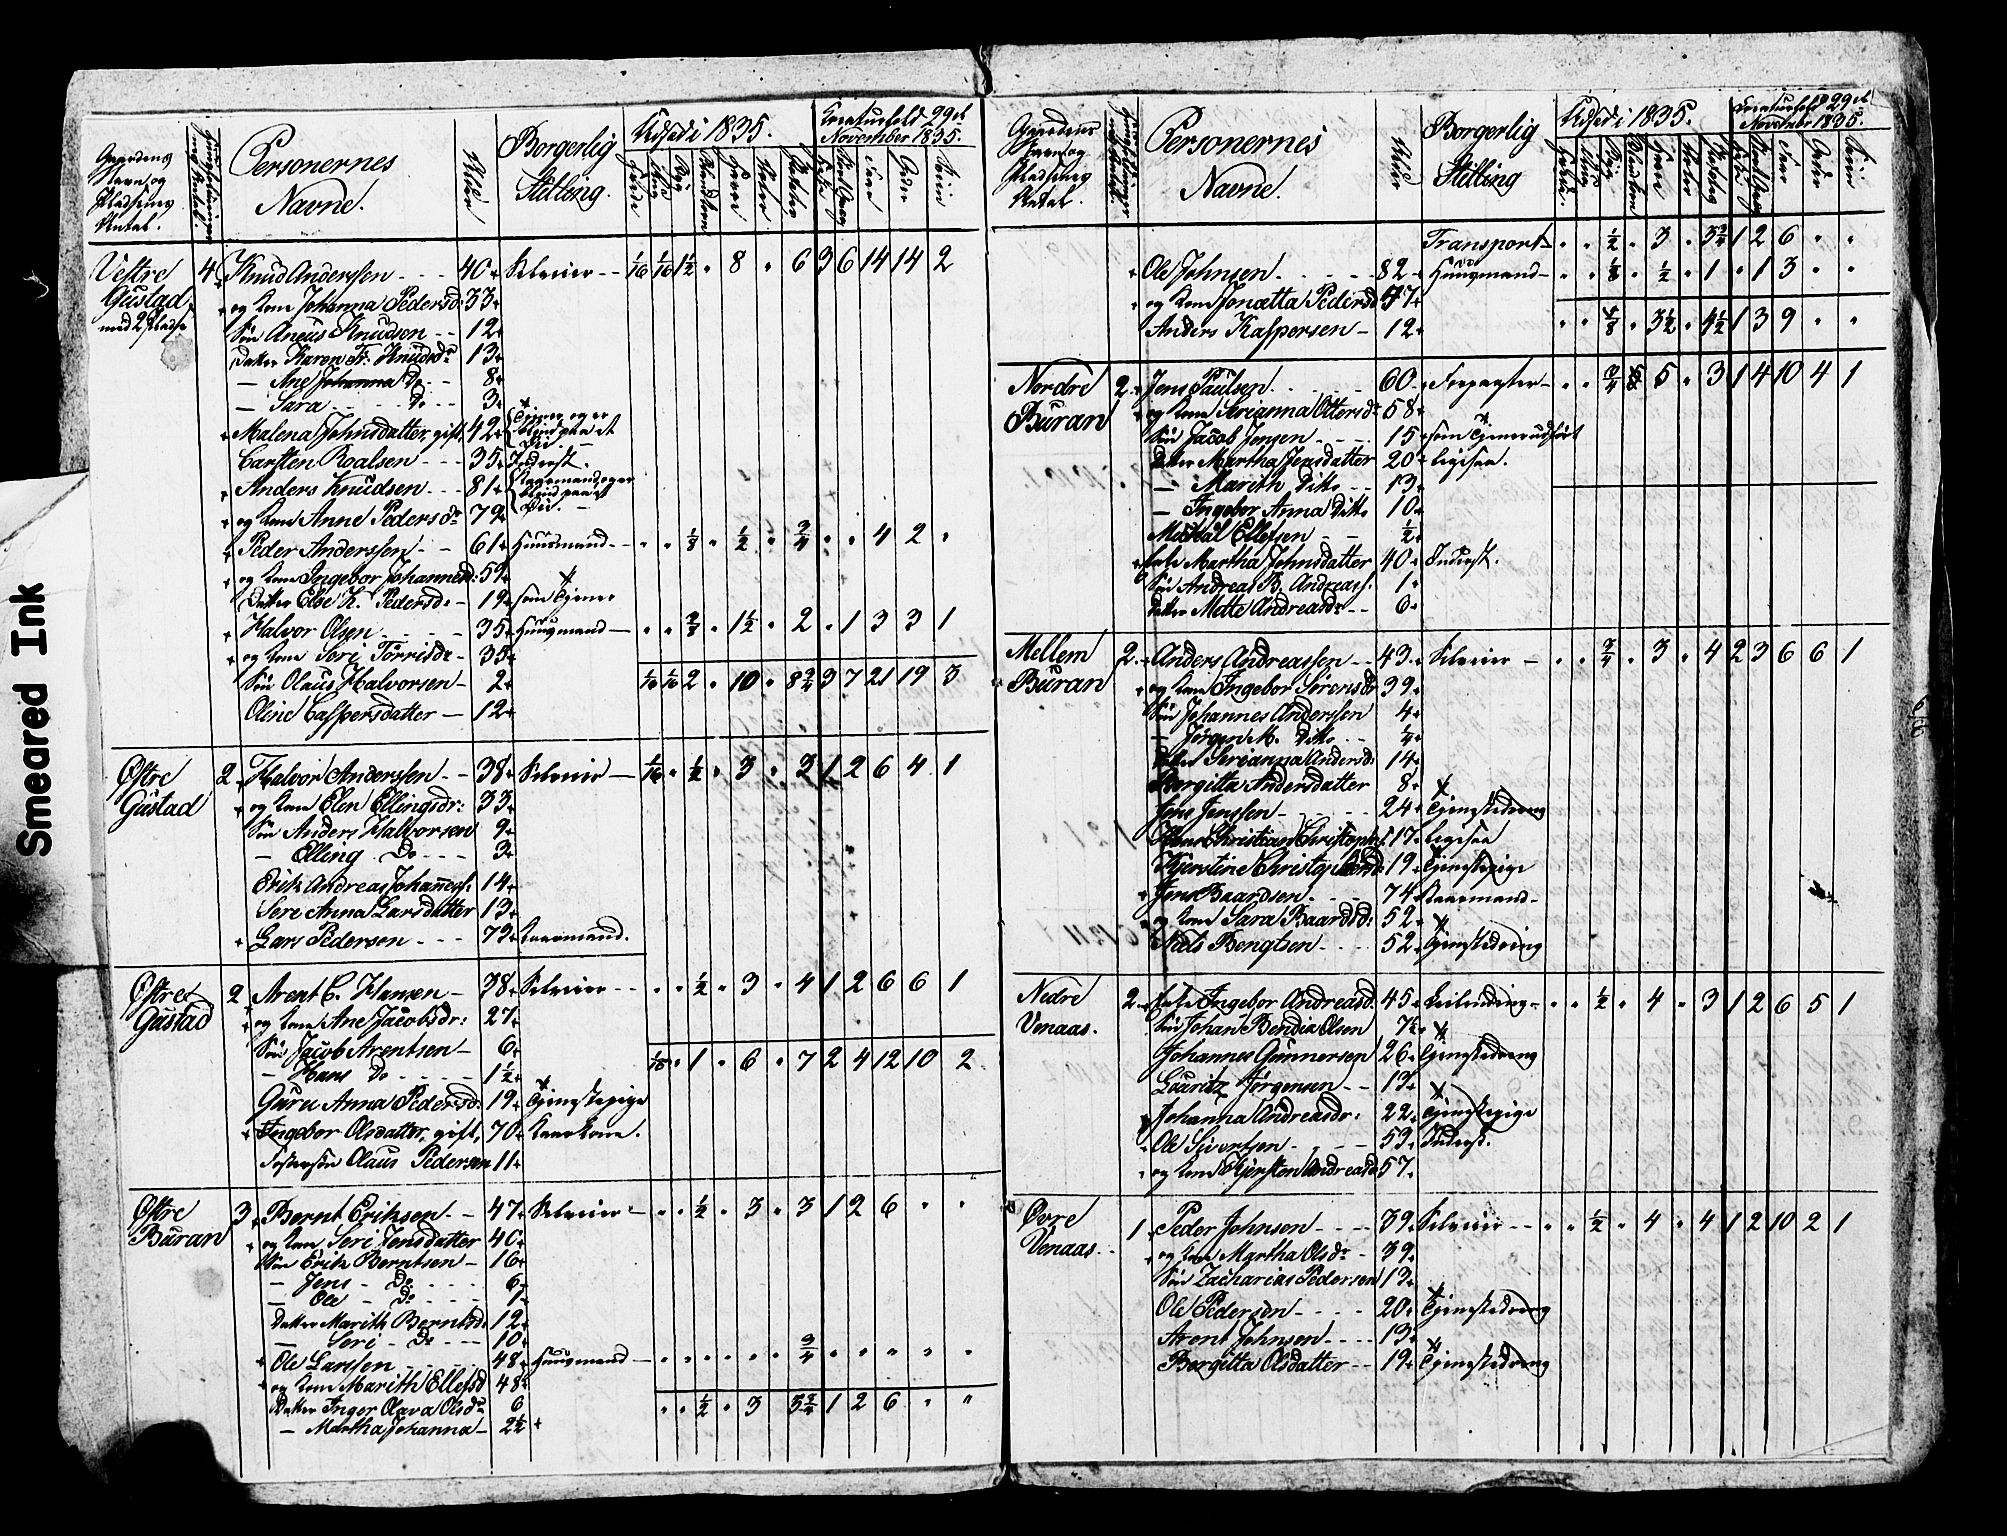 Smeared Ink
Gaardens Navn og Pladsenes Antal.
Personernes Navne.
Alder
Borgerlig Stilling.
Udsæd i 1835.
Kreaturhold 29de November 1835.
Vestre Gustad med 2 Pladse 4 Knud Anderssen 40 Selveier 1/16 1/16 1½ " 8 " 6 3 6 14 14 2
og Kone Johanna Pedersd: 33
Søn Aneus Knudsen 12
Datter Karen Fr: Knudsdr 13
— Ane Johanna Do 8
— Sara Do 3
Malena Johnsdatter, gift, 42 Tjener og er
Carsten Roalsen 35 Inderst.
Anders Knudsen 81
og Kone Anne Pedersdr 79
Peder Anderssen 61 Huusmand " " 1/8 " ½ " ¾ " " 4 2 "
og Kone Ingebor Johannesd: 59
Datter Else K. Pedersdr 19 som Tjener
Halvor Olsen 35 Huusmand " " 3/8 " 1½ " 2 " 1 3 3 1
og Kone Seri Torrisdr 35
1/16 1/16 2 " 10 " 8¾ 3 7 21 19 3
Søn Olaus Halvorsen 2
Oline Caspersdatter 12
Østre Gustad 2 Halvor Anderssen 38 Selveier 1/16 " ½ " 3 " 3 1 2 6 4 1
og Kone Elen Ellingsdr: 33
Søn Anders Halvorsen 9
— Elling Do 3
Erik Andreas Johanness: 14
Sere Anna Larsdatter 13
Lars Pedersen 73 Kaarmand.
Østre Gustad 2 Arent C. Hansen 38 Selveier " " ½ " 3 " 4 1 2 6 6 1
og Kone Ane Jacobsdr: 27
Søn Jacob Arentsen 6
1/16 " 1 " 6 " 7 2 4 12 10 2
— Hans Do 1½
Guru Anna Pedersd: 19 Tjenestepige
Ingebor Olsdatter, gift, 70 Kaarkone.
Fostersøn Olaus Pedersen 11
Østre Buran 3 Bernt Eriksen 47 Selveier " " ½ " 3 " 3 1 2 6 " "
og Kone Seri Jensdatter 40
Søn Erik Berntsen 16
— Jens Do 6
— Ole Do 1
Datter Marith Berntsd: 12
— Seri Do 10
Ole Larssen 48 Huusmand " " " " " " ¾ " " " " "
og Kone Marith Ellefsd 48
Datter Inger Olava Olsdr 6
" " ½ " 3 3¾ 1 2 6 " "
— Martha Johanna 2½
Gaardens Navn og Pladsenes Antal.
Personernes Navne.
Alder
Borgerlig Stilling
Udsæd i 1835.
Kreaturhold 29de November 1835.
Transport " " ½ " 3 " 3¾ 1 2 6 " "
Ole Johnsen 82 Huusmand " " 1/8 " ½ " 1 " 1 3 " "
og Kone Jonetta Pedersd 47
Anders Kaspersen 12
3½ " 4½ 1 3 9 " "
Nordre Buran 2 Jens Paulsen 60 Forpagter " " ¾ 5 " 3 1 4 10 4 1
og Kone Arianna Ottersdr 58
Søn Jacob Jensen 15 som Tjener udført
Datter Martha Jensdatter 20 ligesaa.
— Marith Ditto 13
— Ingebor Anna Ditto 10
Mickal Ellefsen ½
Enke Martha Johnsdatter 40 Inderst.
Søn Andreas B. Andreass: 1
Datter Mette Andreasdr 6
Mellem Buran 2 Anders Andreassen 43 Selveier " " ¾ " 3 " 4 2 3 6 6 1
og Kone Ingebor Sørensdr 39
Søn Johannes Anderssen 4
— Jørgen M. Ditto
Datter Serianna Andersd: 14
Borgitta Andersdatter 8
Jens Jenssen 24 Tjenestedreng
Hans Christian Christoph: 17 ligesaa
Kjerstine Christop 19 Tjenestepige
Jens Baardsen 74 Kaarmand
og Kone Sara Baardsd: 52
Niels Bengtsen 52 Tjenestedreng
Nedre Venaas. 2 Enke Ingebor Andreasd. 45 Leilending " " ½ " 4 " 3 1 2 6 5 1
Søn Johan Bendix Olsen 7½
Johannes Gunnersen 26 Tjenestedreng
Lauritz Jørgensen 13
Johanna Andreasdr: 22 Tjenestepige
Ole Sivertsen 53 Inderst.
og Kone Kjersten Andreasd 57
Øvre Venaas. 1 Peder Johnsen 39 Selveier " " ½ " 4 " 4 1 2 10 2 1
og Kone Martha Olsdr 39
Søn Zacharias Pedersen 13
Ole Pedersen 20 Tjenestedreng
Arent Johnsen 13
Borgitta Olsdatter 19 Tjenestedreng